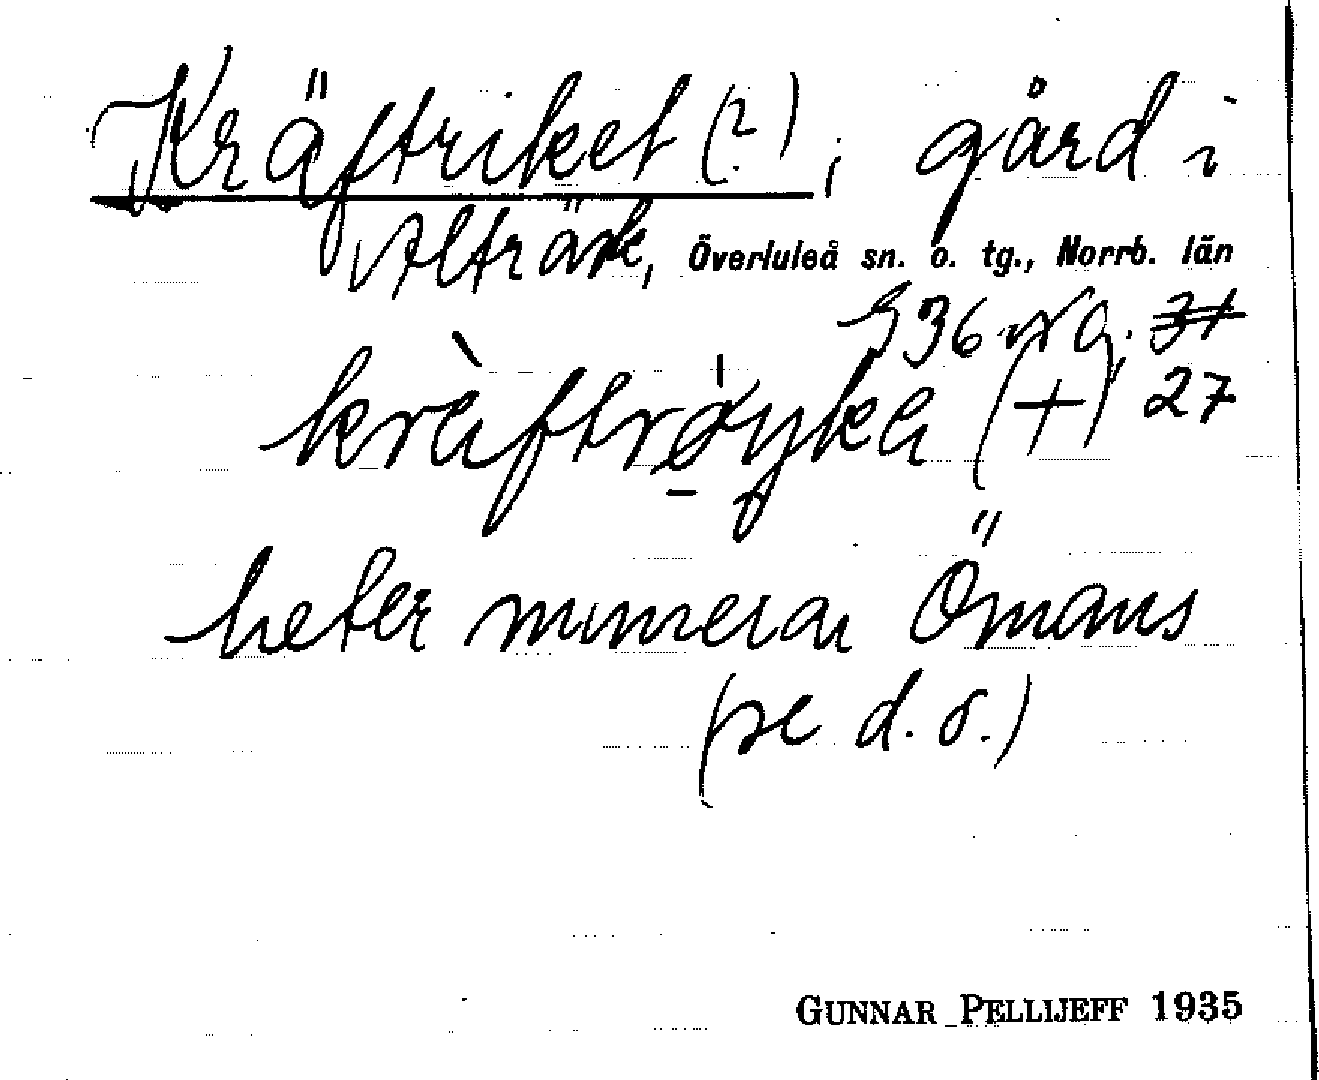 Kräftriket (?), gård i
Alträsk, Överluleå sn. o. tg., Norrb. län
S36 NO. 31
kràftrøyka (+) 27
heter numera Ömans
(se d. o.)
GUNNAR PELLIJEFF 1935